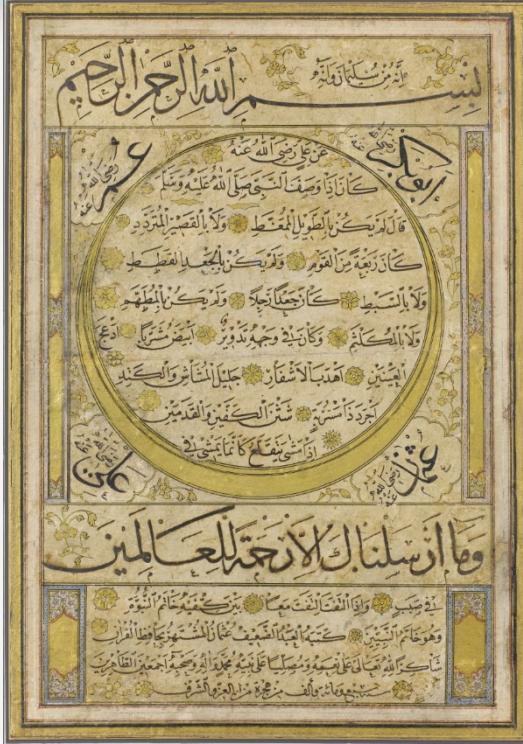 انه من سليمان وانه
بسم الله الرحمن الرحيم
ابو بكر رضي الله عنه
عمر رضي الله عنه
عن علي رضي الله عنه
كان اذا وصف النبي صلى الله عليه وسلم
قال لم يكن بالطويل الممغط ولا بالقصير المتردد
كان ربعة من القوم ولم يكن بالجعد القطط
ولا بالسبط كان جعدا رجلا ولم يكن بالمطهم
ولا بالمكلثم وكان في وجهه تدوير ابيض مشربا ادعج
العينين اهدب الاشفار جليل المشاش والكتد
اجرد ذا مسربة شثن الكفين والقدمين
اذا مشى يتقلع كانما يمشي في
عثمان رضي الله عنه
علي رضي الله عنه
وما ارسلناك الا رحمة للعالمين
في صبب واذا التفت التفت معا بين كتفيه خاتم النبوة
وهو خاتم النبيين كتبه العبد الضعيف عثمان المشتهر بحافظ القران
شاكرا لله تعالى على نعمه ومصليا على نبيه محمد واله وصحبه اجمعين
سنة ومائة والف من هجرة من له العز والشرف